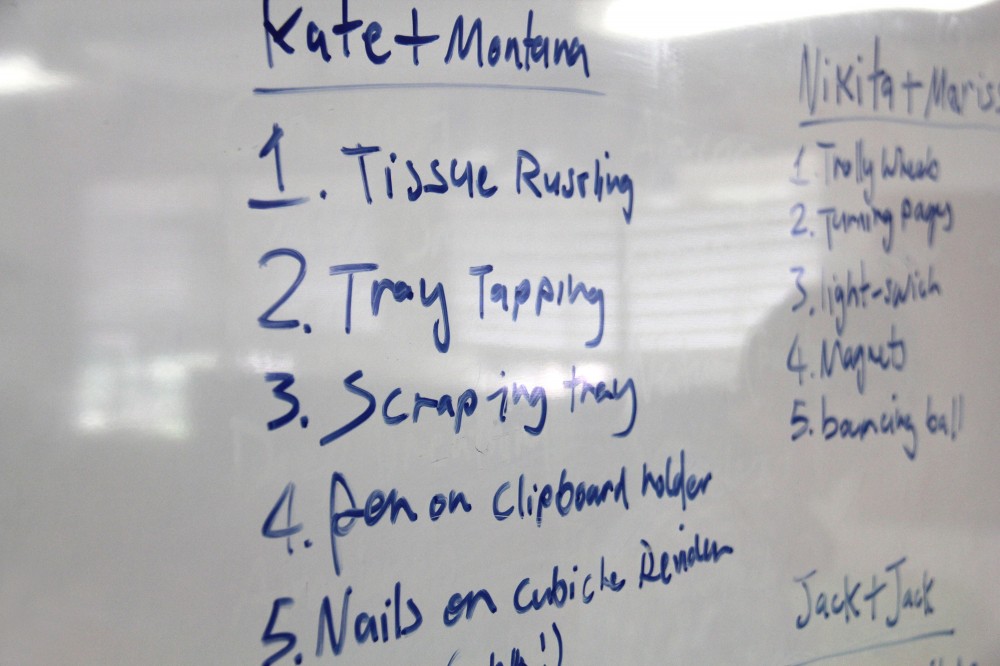 Kate + Montana
1. Tissue Rustling
2. Tray Tapping
3. Scraping tray
4. Pen on clipboard holder
5. Nails on cubicle
Nikita + Mariss
1. Trolly wheels
2. Turning pages
3. light-swich
4. Magnets
5. bouncing ball
Jack + Jack